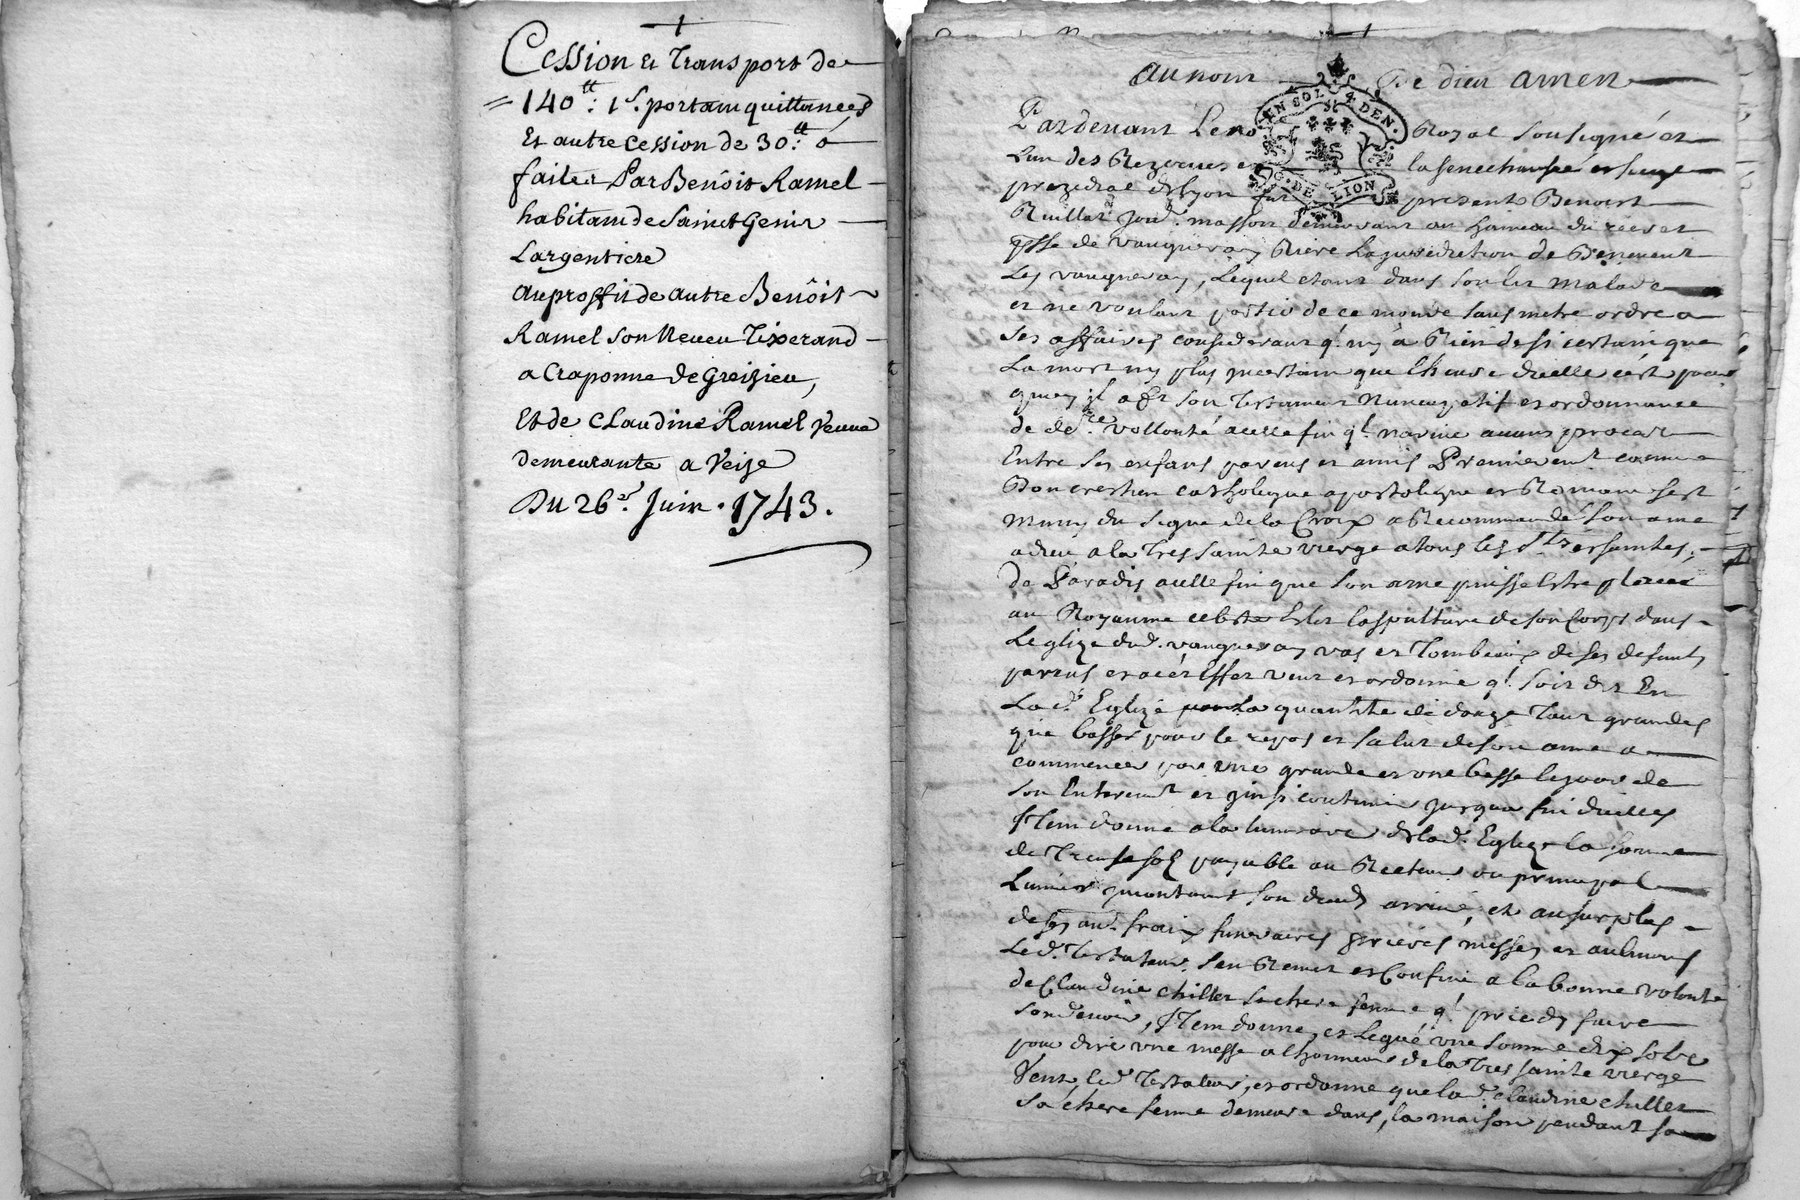 Cession et Transport de
140tt : 1s. portant quittances
Et autre Cession de 30tt :
faite Par Benôit Ramel
habitant de Sainct Genis
Largentiere
au proffit de autre Benôit
Ramel son Neveu Tixerand
a Craponne de Greizieu,
Et de CLaudine Ramel veuve
demeurante a Veize
Du 26e. Juin . 1743.
au nom De dieu amen
EN SOL 4 DEN.
G. DE LION
Pardevant Le no Royal soussigné et
Lun des Rezerves la senechaussée et siege
prezidial de Lyon fut present Benoist
masson demeurant au hameau du
de vaugneray Riere La jurisdiction de Benevent
Les vaugneray, Lequel etant dans son lit malade
et ne voulant partir de ce monde sans metre ordre a
ses affaires considerant q'. ny a Rien de si certain que
La mort ny plus incertain que Lheure dicelle cest pour
quoy il a ft son Testament Nuncupatif et ordonnance
de dre. vollonté a celle fin q'. navine aucun procest
Entre ses enfans parens et amis Premierent. comme
Bon crestien catholique apostolique et Romain sest
muny du signe de la Croix a Recommandé son ame
a dieu a la Tres sainte vierge a tous les Sts et saintes
de Paradis a celle fin que son ame puisse Estre placée
au Royaume celeste Eslit la sepulture de son Corps dans
Leglize dud. vaugneray vas et Tombeaux de ses defunts
parens et a cet Effet veut et ordonne q'. soit dit En
La d. Eglize pour La quantité de douze Tant grandes
que basses pour le repos et salut de son ame a
commencer par une grande et une basse le jour de
son Enterremt. et ainsi continuer jusqua fin dicelles
Item donne a la luminaire de lad. Eglize la somme
de Trente sols payable au Recteur ou principal
Luminier son deceds arrivé, et au surplus
de ses au. fraix funeraires prieres messes et aulmones
Led. Testateur sen Remet et Confie a la bonne volonté
de Claudine chillet sa chere femme q'. prie dy faire
son devoir, Item donne et Legue une somme de dix sols
pour dire une messe a lhonneur de la Tres sainte vierge
Veut, led. Testateur, et ordonne que lad. Claudine chillet
sa chere femme demeure dans, la maison pendant sa